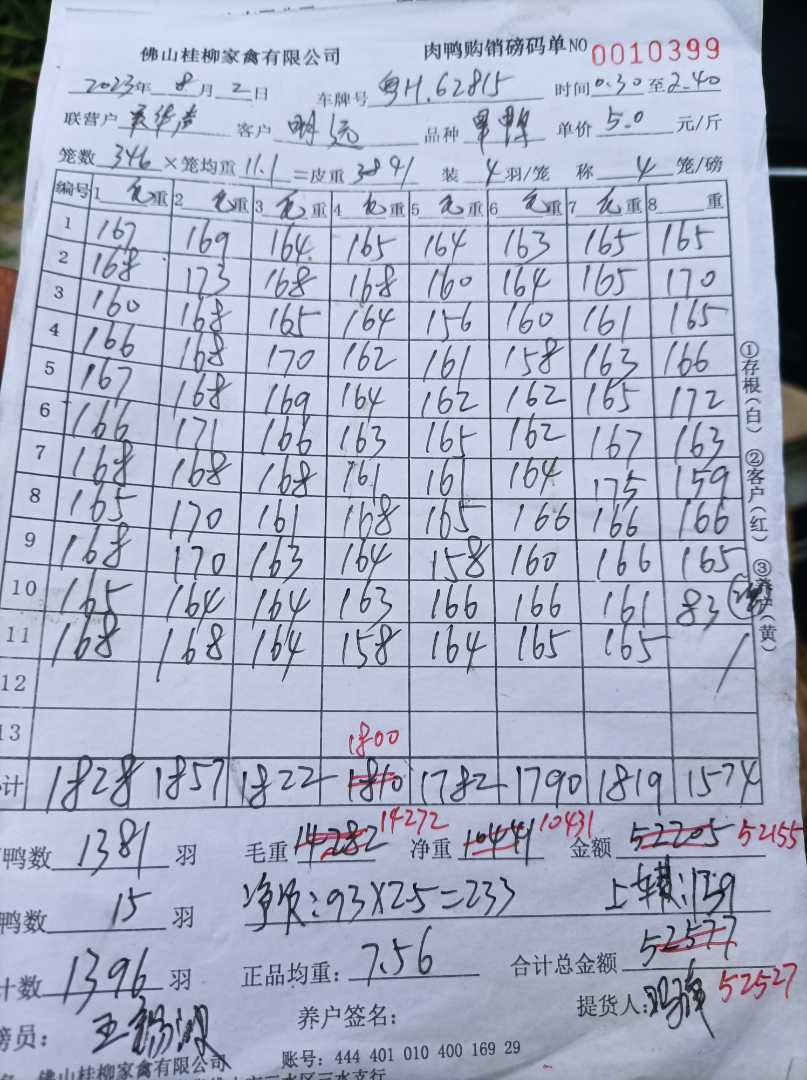 佛山桂柳家禽有限公司 肉鸭购销磅码单 NO 0010399
2023年 8月 2日 车牌号 粤H.62815 时间 0.30 至 2.40
联营户 客户 明远 品种 单价 5.0 元/斤
笼数 346 ×笼均重 11.1 =皮重 3841 装 4 羽/笼 称 4 笼/磅
编号 1 毛重 2 毛重 3 毛重 4 毛重 5 毛重 6 毛重 7 毛重 8 重
1 167 169 164 165 164 163 165 165
2 168 173 168 168 160 164 165 170
3 160 168 165 164 156 160 161 165
4 166 168 170 162 161 158 163 166
5 167 168 169 164 162 162 165 172
6 166 171 166 163 165 162 167 163
7 168 168 168 161 161 164 175 159
8 165 170 161 168 165 166 166 166
9 168 170 163 164 158 160 166 165
10 165 164 164 163 166 166 161 83
11 168 168 164 158 164 165 165
12
13 1800
计 1828 1857 1822 1810 1782 1790 1819 1574
①存根(白) ②客户(红) ③养户(黄)
鸭数 1381 羽 毛重 14282 14272 净重 10441 10431 金额 52205 52155
鸭数 15 羽 93×2.5=233 139
计数 1396 羽 正品均重: 7.56 合计总金额 52577 52527
磅员: 养户签名: 提货人:
佛山桂柳家禽有限公司 账号: 444 401 010 400 169 29